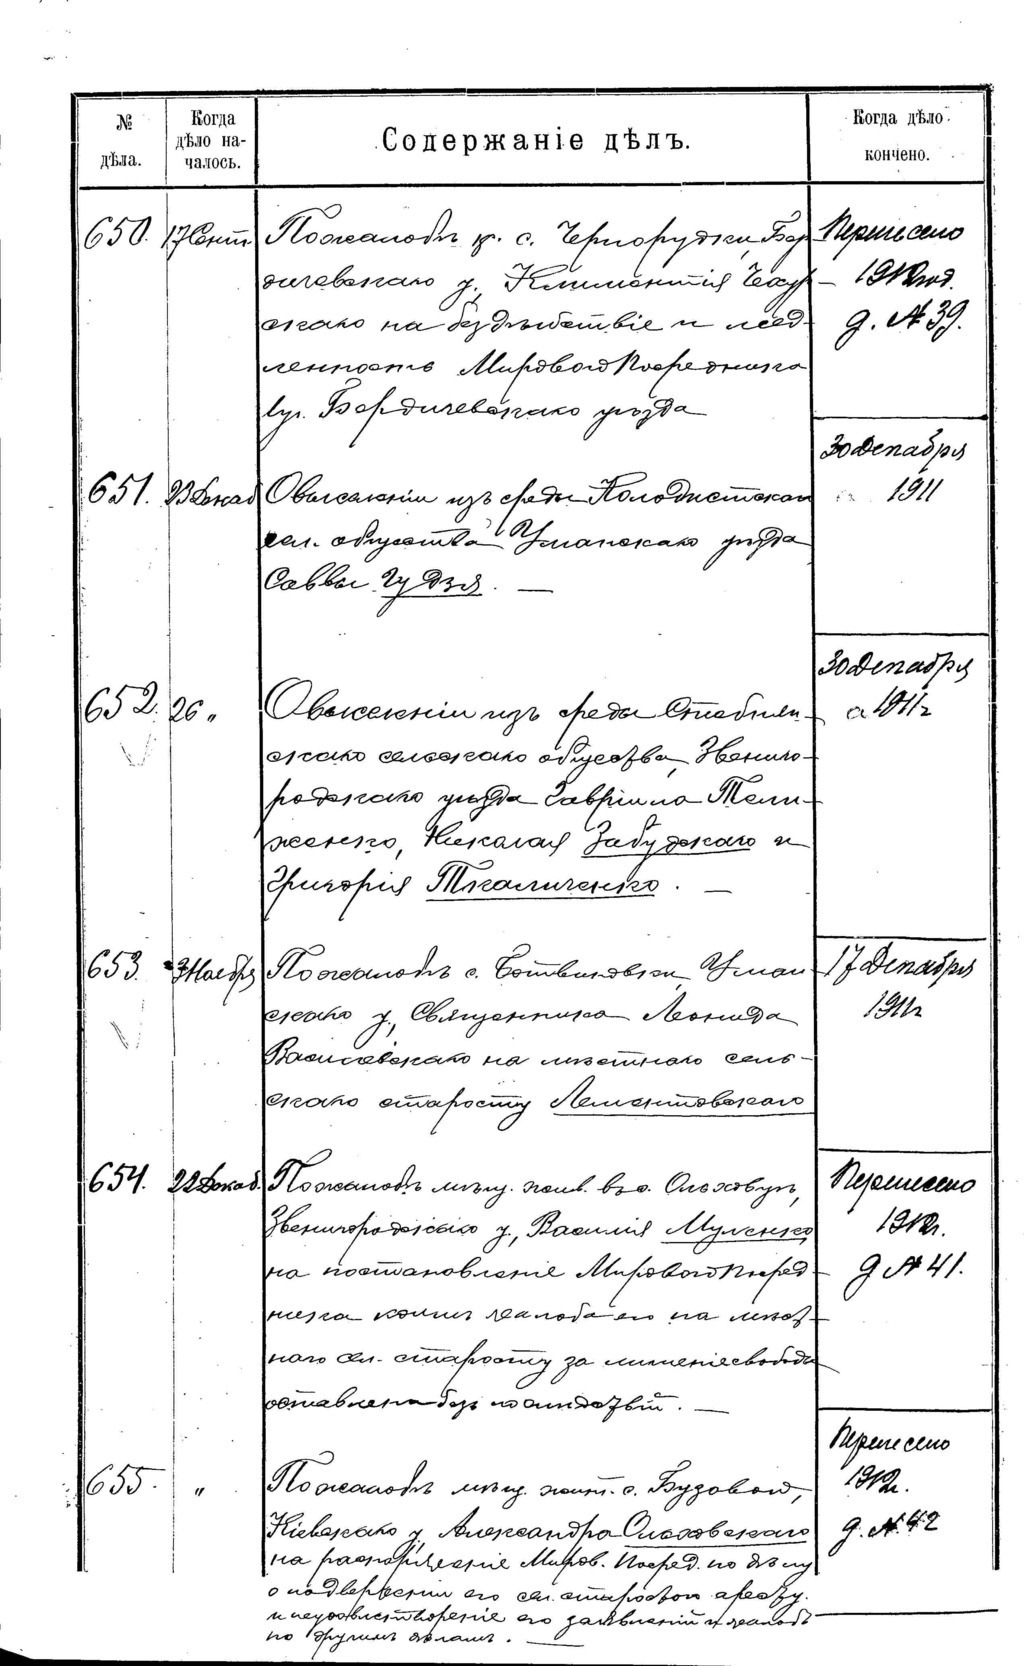 № дѣла.
Когда дѣло на-
чалось.
Содержаніе дѣлъ.
Когда дѣло
кончено.
650. 17 Сент. По жалобѣ кр. с. Чернорудки, Бер-
дичевскаго у., Климентія
на бездѣйствіе и мед-
ленность Мирового Посредника
Бердичевскаго уѣзда
Перенесено
1912 год.
д. № 39.
651. 23 Декаб О выселеніи изъ среды Колодистскаго
сел. общества Уманскаго уѣзда
Саввы Гудзя. —
30 Декабря
1911
652. 26 „ О выселеніи изъ среды Стебним-
скаго сельскаго общества, Звениго-
родскаго уѣзда Гавріила Тели-
женко, Николая Забудскаго и
Григорія Ткаличенко. —
30 Декабря
1911 г
653. 3 Ноября По жалобѣ с. Ботвиновки Уман-
скаго у., Священника Леонида
Василевскаго на мѣстнаго сель-
скаго старосту Лементовскаго
17 Декабря
1911 г
654. 22 Декаб. По жалобѣ мѣщ. жив. въ с. Ольховцѣ,
Звенигородскаго у., Василія Муленко
на постановленіе Мирового Посред-
ника коимъ жалоба его на мѣст-
наго сел. старосту за лишеніе свободы
оставлена безъ послѣдствій. —
Перенесено
1912 г.
д № 41.
655. „ По жалобѣ мѣщ. жит. с. Бузовой,
Кіевскаго у. Александра Ольховскаго
на распоряженіе Миров. Посред. по дѣлу
о подверженіи его сел. старостою аресту
и неудовлетвореніе его заявленій и жалобъ
по другимъ дѣламъ. —
Перенесено
1912 г.
д. № 42